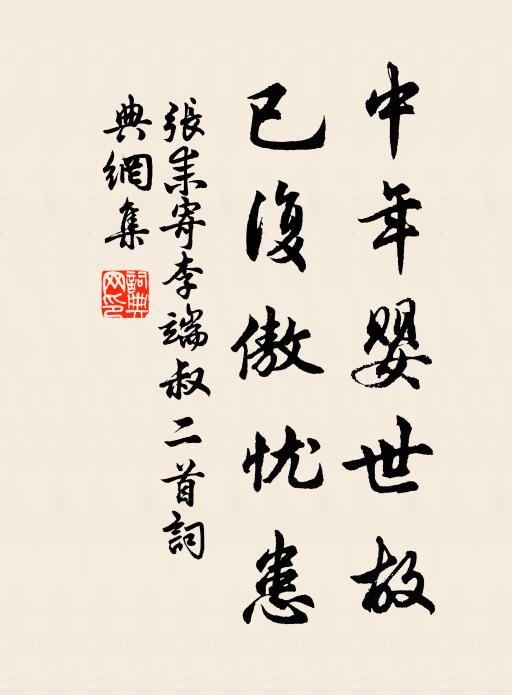 中年婴世故
已復傲忧患
張耒寄李端叔二首詞
典網集
詞典網印